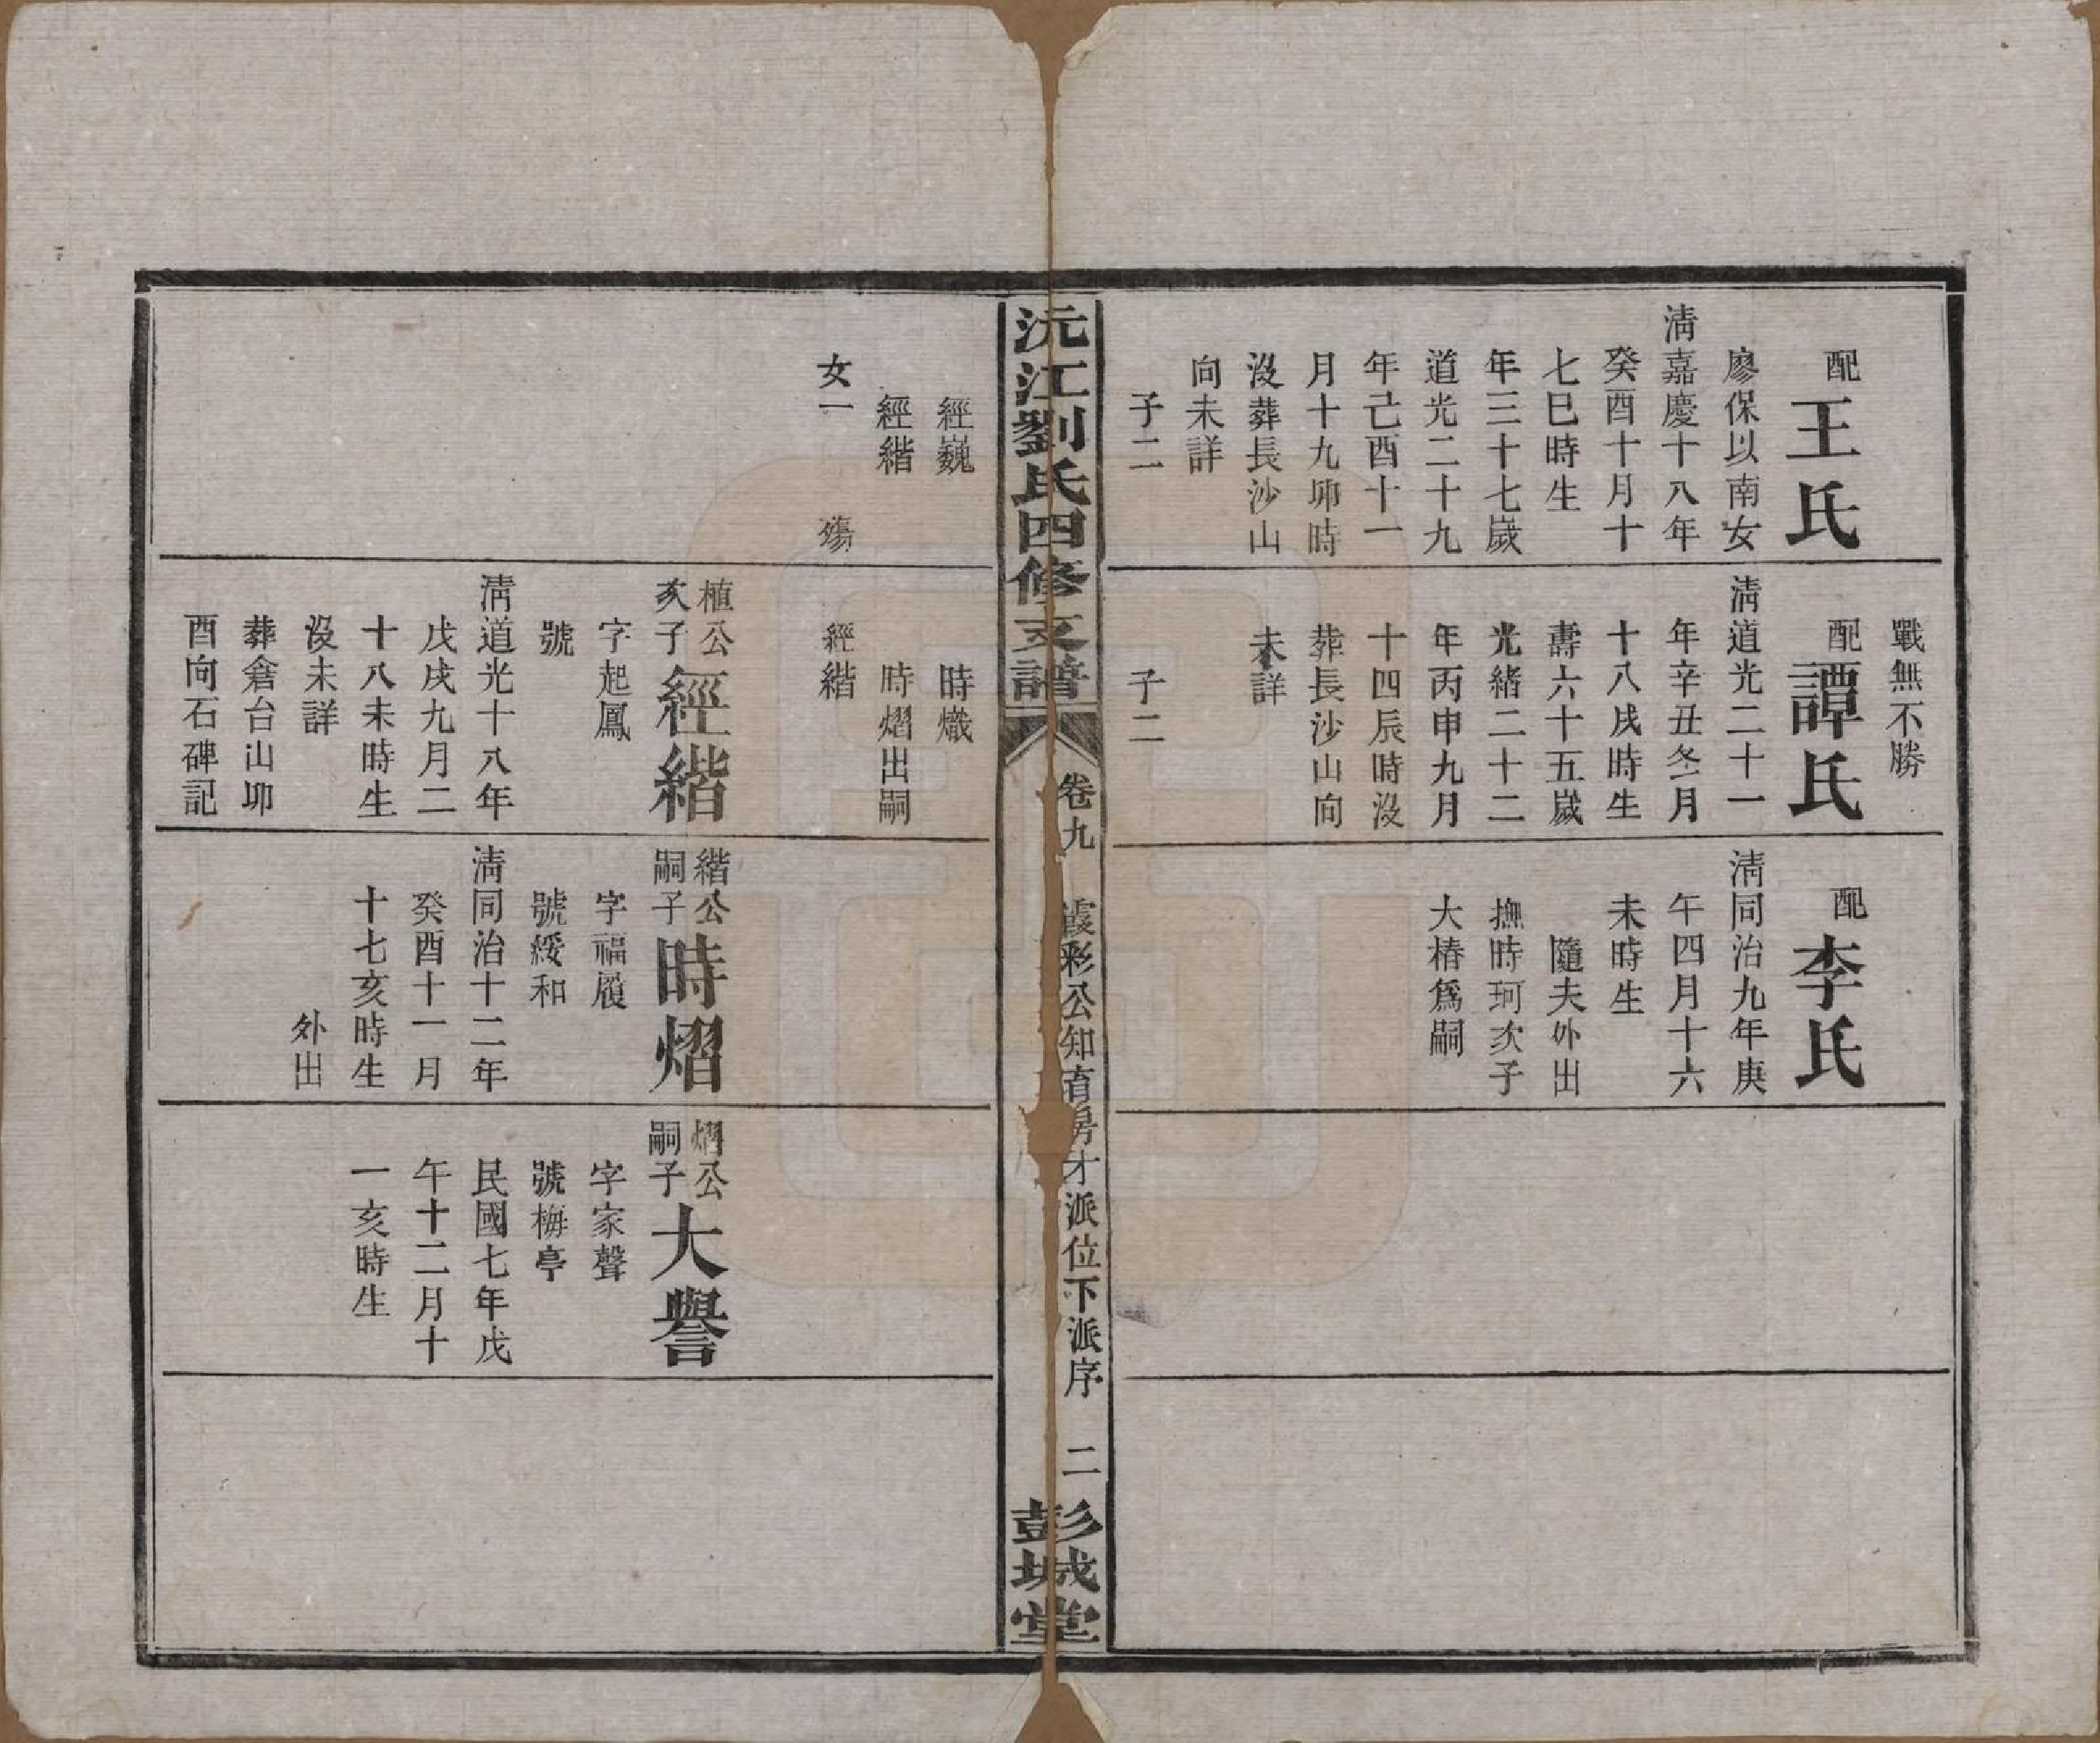 配王氏
廖保以南女
清嘉慶十八年
癸酉十月十
七巳時生
年三十七歲
道光二十九
年己酉十一
月十九卯時
沒葬長沙山
向未詳
子二
戰無不勝
配譚氏
清道光二十一
年辛丑冬月
十八戌時生
壽六十五歲
光緒二十二
年丙申九月
十四辰時沒
葬長沙山向
未詳
子二
配李氏
清同治九年庚
午四月十六
未時生
隨夫外出
撫時珂次子
大椿為嗣
沅江劉氏四修支譜
卷九
霞彩公知育房才派位下派序
二
彭城堂
經巍
經緒
女一 殤
時熾
時熠出嗣
經緒
植公
亥子
經緒
字起鳳
號
清道光十八年
戊戌九月二
十八未時生
沒未詳
葬倉台山卯
酉向石碑記
緒公
嗣子
時熠
字福履
號綏和
清同治十二年
癸酉十一月
十七亥時生
外出
熠公
嗣子
大譽
字家聲
號梅亭
民國七年戊
午十二月十
一亥時生